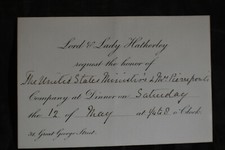 Lord & Lady Hatherley
request the honor of
The United States Minister's & Mrs Pierrepont
Company at Dinner on Saturday
the 12 of May at ¼ to 8 o'Clock.
30 Great George Street.